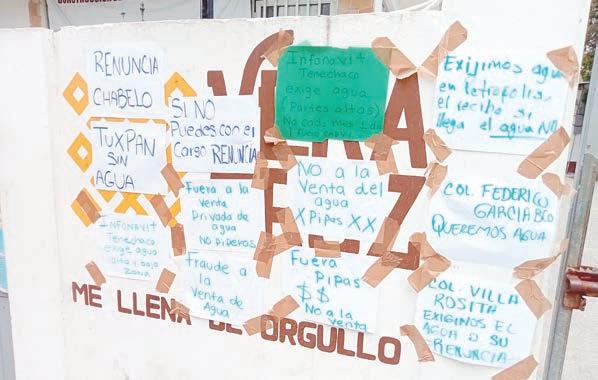 RENUNCIA
CHABELO
TUXPAN
SIN
AGUA
SI NO
Puedes con el
Cargo RENUNCIA
Infonavit
Tenechaco
exige agua
(Partes altas)
Exijimos agua
en Letropolis,
el recibo si
llega el agua NO
Fuera a la
Venta
Privada de
agua
NO PIPEROS
NO a la
Venta del
agua
X Pipas XX
COL. FEDERICO
GARCIA BCO
QUEREMOS AGUA
INFONAVIT
Tenechaco
exige agua
alta y baja
zona
Fraude a la
Venta de
Agua
Fuera
Pipas
$$
No a la
Venta
COL. VILLA
ROSITA
EXIGINOS EL
AGUA O SU
RENUNCIA
ME LLENA DE ORGULLO